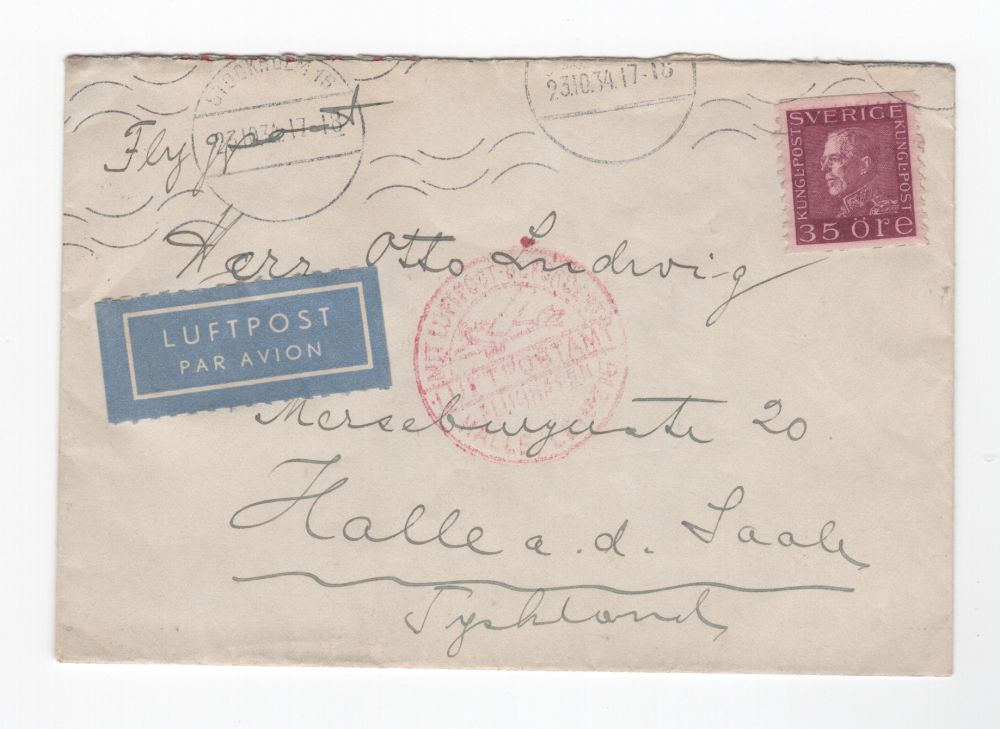 STOCKHOLM 16
23.10.34.17-18
23.10.34.17-18
Flygpost
SVERICE
KUNGL·POST
KUNGL·POST
35 öre
Herr Otto Ludwig
LUFTPOST
PAR AVION
MIT LUFTPOST BEFÖRDERT
LUFTPOSTAMT
HALLE
Merseburgerstr 20
Halle a. d. Saale
Tyskland